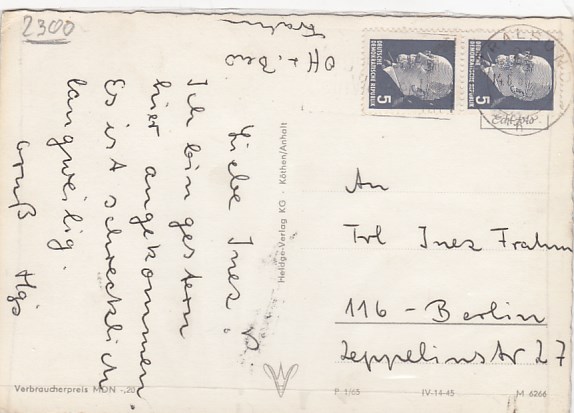 2300
Ott. Bad
Frahm
Liebe Ines.
Ich bin gestern
hier angekommen.
Es ist schrecklich
langweilig.
Gruß Hgs
Heldge-Verlag KG · Köthen/Anhalt
DEUTSCHE
DEMOKRATISCHE REPUBLIK
5
DEUTSCHE
DEMOKRATISCHE REPUBLIK
5
An
Frl Ines Frahm
116 - Berlin
Zeppelinstr 27
Verbraucherpreis MDN -,20
F 1/65
IV-14-45
M 6266